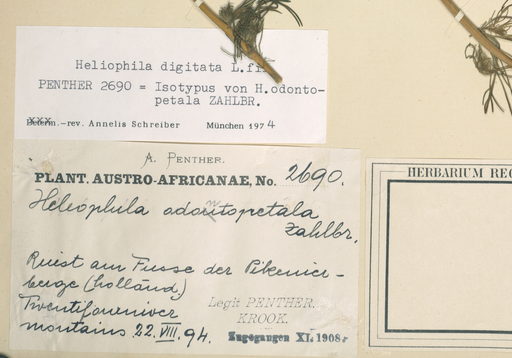 Heliophila digitata L.fil.
PENTHER 2690 = Isotypus von H.odonto-
petala ZAHLBR.
Determ.-rev. Annelis Schreiber München 1974
A. PENTHER.
PLANT. AUSTRO-AFRICANAE, No. 2690.
Heliophila odontopetala
Zahlbr.
am Fusse der Pikenier-
berge (holland)
mountains 22. VIII. 94.
Legit PENTHER.
KROOK.
Zugegangen XI. 1908
HERBARIUM REG